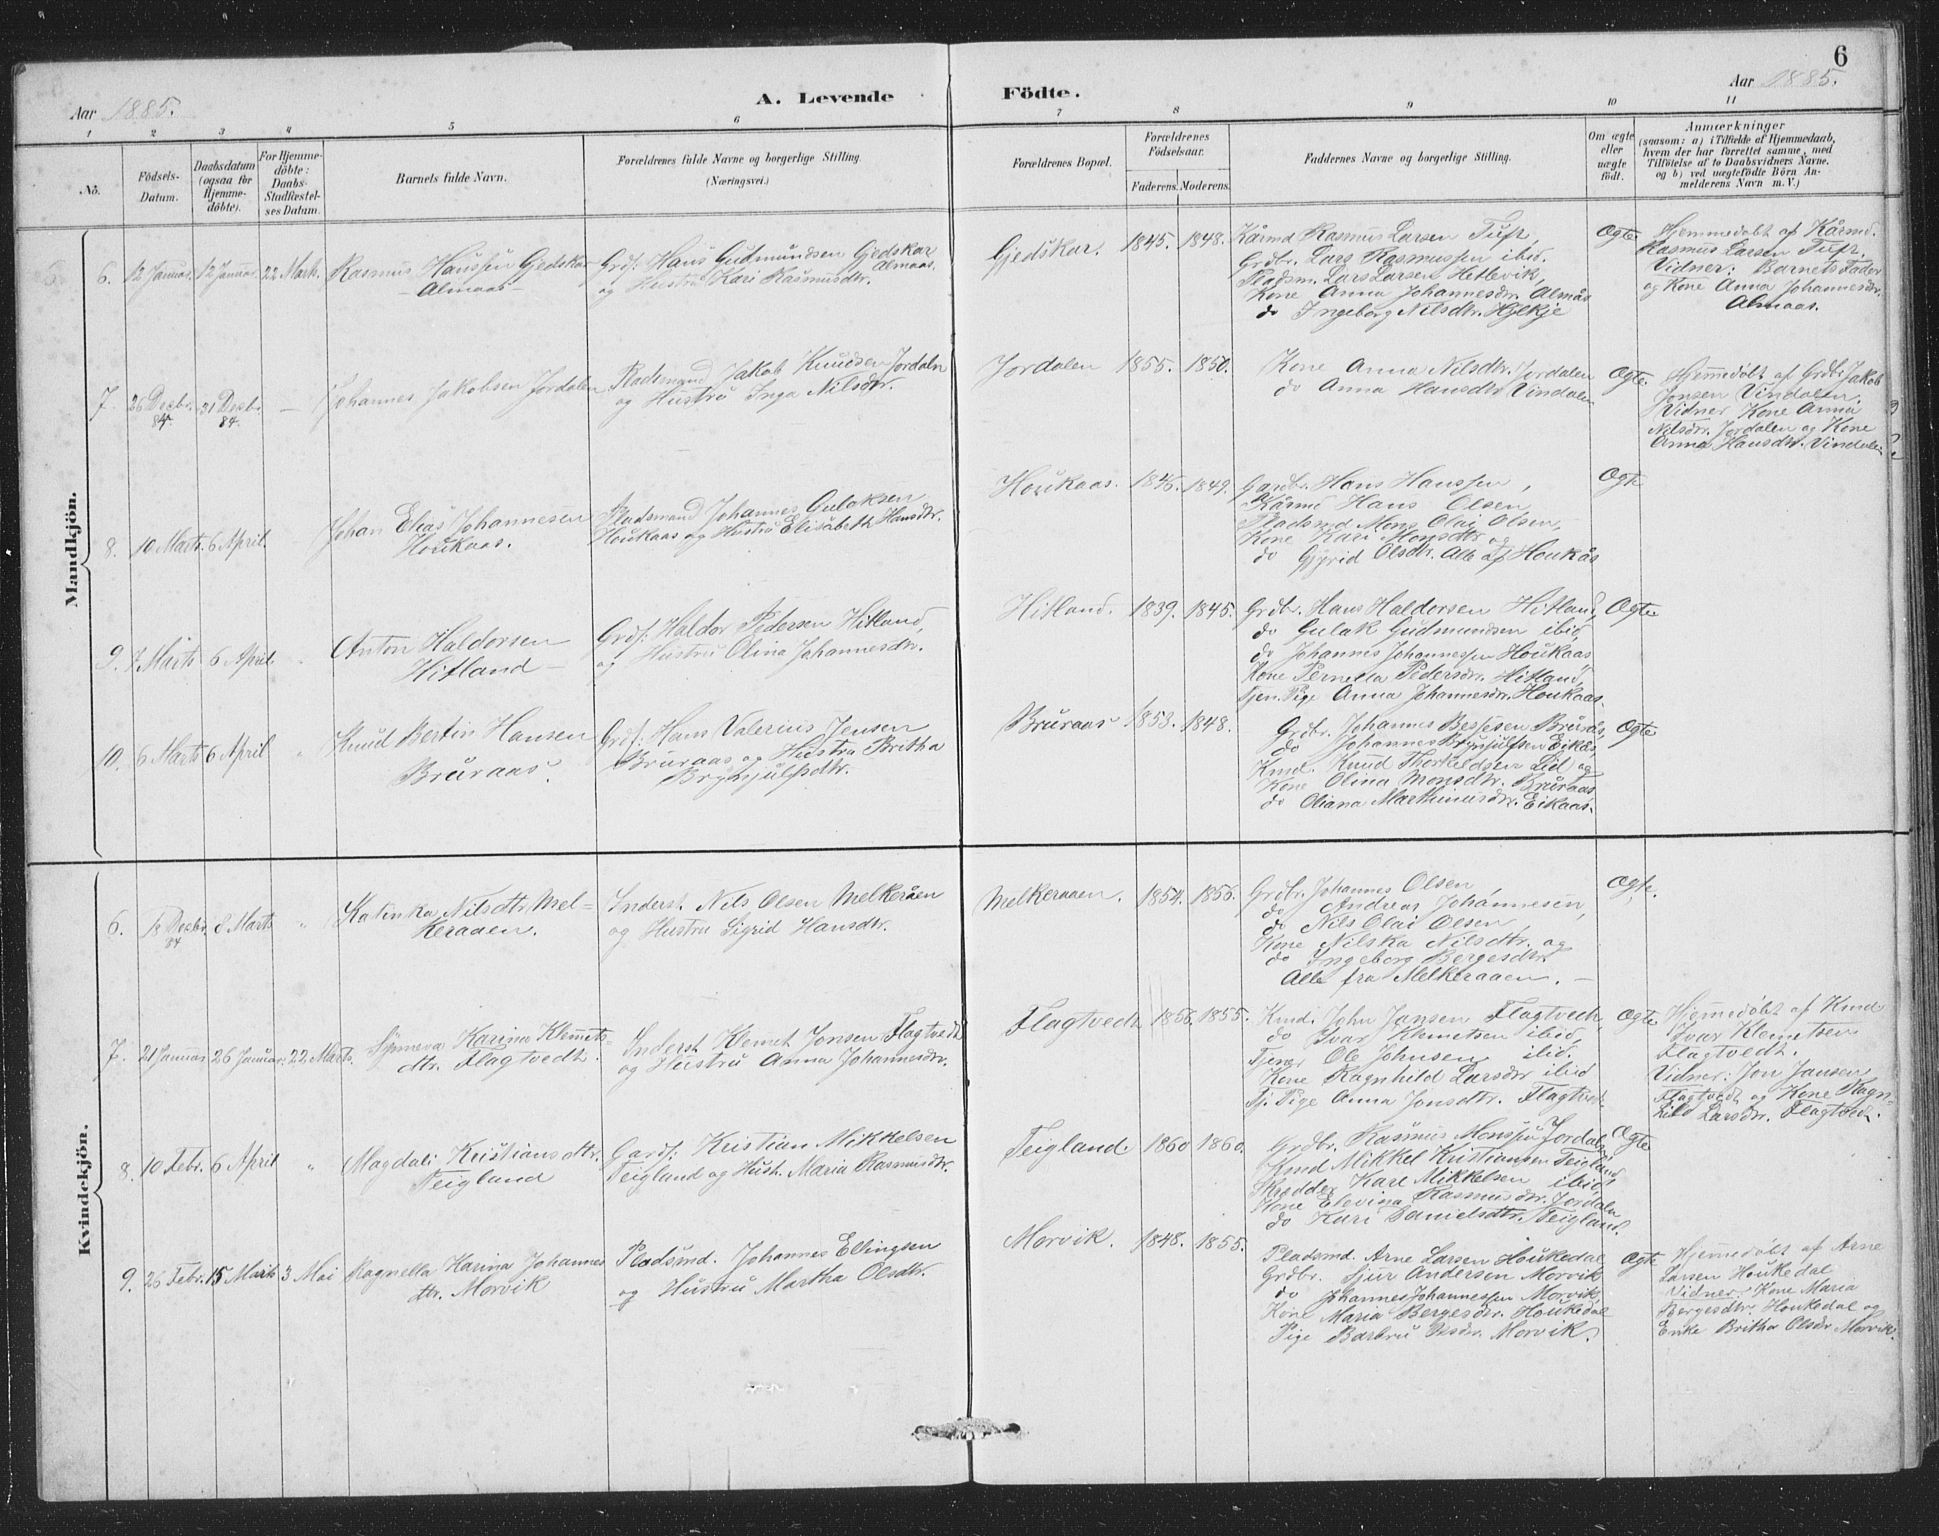 6
Aar 1885.
A. Levende Födte.
Aar 1885.
1 2 3 4 5 6 7 8 9 10 11
No.
Födsels-Datum.
Daabsdatum (ogsaa for Hjemmedöbte).
For Hjemmedöbte: Daabs-Stadfæstelses Datum.
Barnets fulde Navn.
Forældrenes fulde Navne og borgerlige Stilling.
(Næringsvei.)
Forældrenes Bopæl.
Forældrenes Födselsaar.
Faderens. Moderens.
Faddernes Navne og borgerlige Stilling.
Om ægte eller uægte födt.
Anmærkninger
(saasom: a) i Tilfælde af Hjemmedaab, hvem der har forrettet samme, med Tilföielse af to Daabsvidners Navne. og b) ved uægtefödte Börn Anmelderens Navn m. V.)
Mandkjön.
6. 12 Januar. 12 Januar. 22 Mark.
Rasmus Hanssen Gjedskar
- Almaas -
Grdf: Hans Gudmundsen Gjedskar
Almaas.
og Hustru Kari Rasmusdtr.
Gjedskar. 1845. 1848.
Kårmd Rasmus Larsen Tuft,
Grdbr. Lars Rasmussen ibid.
Pladsm. Lars Larsen Hetlevik,
Kone Anna Johannesdr. Almås
do Ingeborg Nilsdtr. Hylkje
Ægte
Hjemmedöbt af Kårmd.
Rasmus Larsen Tuft,
Vidner: Barnets Fader
og Kone Anna Johannesdr.
Almaas.
7. 26 Desbr. 84 31 Desbr. 84. -
Johannes Jakobsen Jordalen
Pladsmand Jakob Knudsen Jordaln
og Hustru Inga Nilsdtr.
Jordalen 1855. 1850.
Kone Anna Nilsdtr. Jordalen
do Anna Hansdtr Vindalen
Ægte.
Hjemmedöbt af Grdbr. Jakob
Jonsen Vindalen.
Vidner Kone Anna
Nilsdtr. Jordalen og Kone
Anna Hansdtr. Vindalen
8. 10 Marts. 6 April.
Johan Elias Johannesen
Houkaas.
Pladsmand Johannes Gulaksen
Houkaas og Hustru Elisabeth Hansdtr.
Houkaas. 1846. 1849.
Gardbr. Hans Hanssen,
Kårmd Hans Olsen,
Pladsmd Mons Olai Olsen,
Kone Kari Monsdtr og
do Gjyrid Olsdtr. Alle af Houkås
Ægte
9. Marts 6 April "
Anton Haldorsen
Hitland -
Grdf: Haldor Pedersen Hitland,
og Hustru Olina Johannesdtr.
Hitland. 1839. 1845.
Grdbr. Hans Haldorsen Hitland,
do Gulak Gudmundsen ibid,
do Johannes Johannessen Houkaas
Kone Pernella Pedersdr. Hitland,
Tjen. Pige Anna Johannesdr. Houkaas.
Ægte
10. 6 Marts 6 April "
Knud Bertin Hansen
Bruraas.
Grdf: Hans Valerius Jensen
Bruraas og Hustru Britha
Brynjulfsdtr.
Bruraas 1853. 1848.
Grdbr. Johannes Bessesen Brurås,
do Johannes Brynjulfsen Eikås
Kmd. Knud Thorkeldsen Lid og
Kone Olina Monsdtr. Bruraas
do Oliana Marthinusdr. Eikaas.
Ægte
Kvindekjön.
6. Desbr. 84 8 Marts "
Katinka Nilsdtr. Mel=
keraaen.
Inderst. Nils Olsen Melkeråen
og Hustru Sigrid Hansdtr.
Melkeraaen. 1854. 1856.
Grdbr. Johannes Olsen,
do Andreas Johannesen,
do Nils Olai Olsen,
Kone Nilska Nilsdtr. og
do Ingeborg Bergesdtr.
Alle fra Melkeraaen. -
Ægte.
7. 21 Januar 26 Januar. 22 Marts.
Synneva Karina Klemets-
dtr. Flagtvedt.
Inderst Klemet Jonsen Flagtvedt
og Hustru Anna Johannesdtr.
Flagtvedt 1856. 1855.
Kmd. John Jansen Flagtvedt,
do Ivar Klemetsen ibid,
Tjener Ole Johnsen ibid.
Kone Ragnhild Larsdtr ibid
Tj. Pige Anna Jonsdtr. Flagtvedt.
Ægte
Hjemmedöbt af Kmd
Ivar Klemetsen
Flagtvedt.
Vidner: Jon Jansen
Flagtvedt og Kone Ragn=
hild Larsdr. Flagtvedt.
8. 10 Febr. 6 April "
Magdali Kristiansdtr.
Teigland
Gardf: Kristian Mikkelsen
Teigland og Hust. Maria Rasmusdtr.
Teigland 1860 1860.
Grdbr. Rasmus Monssen Jordalen,
Kmd Mikkel Kristiansen Teigland,
Skrædder Karl Mikkelsen ibid,
Kone Elevina Rasmusdtr. Jordalen
do Kari Danielsdtr. Teigland.
Ægte
9. 26 Febr. 15 Marts 3 Mai
Ragnella Karina Johannes
dtr. Morvik
Pladsmd. Johannes Ellingsen
og Hustru Martha Olsdtr.
Morvik. 1848. 1855.
Pladsmd. Arne Larsen Houkedal
Grdbr. Sjur Andersen Morvik
do Johannes Johannessen Morvik,
Kone Maria Bergesdr. Houkedal
Pige Barbru Olsdr. Morvik.
Ægte
Hjemmedöbt af Arne
Larsen Houkedal
Vidner: Kone Maria
Bergesdtr. Houkedal og
Enke Britha Olsdr Morvik.